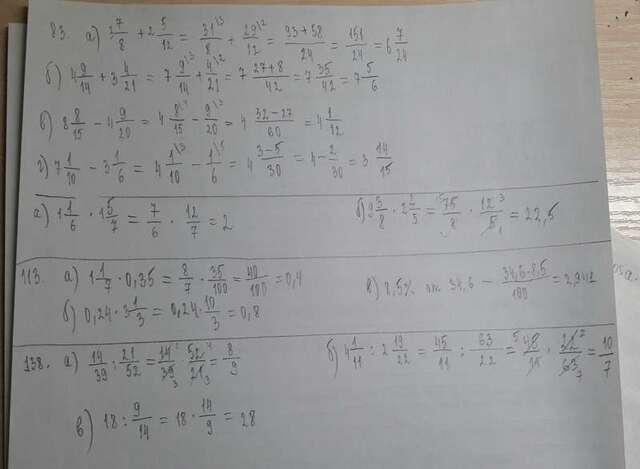 83. а) 3 7/8 + 2 5/12 = 31/8 \3 + 29/12 \2 = 93+58/24 = 151/24 = 6 7/24
б) 4 9/14 + 3 4/21 = 7 9/14 \3 + 4/21 \2 = 7 27+8/42 = 7 35/42 = 7 5/6
в) 8 8/15 - 4 9/20 = 4 8/15 \4 - 9/20 \3 = 4 32-27/60 = 4 1/12
г) 7 1/10 - 3 1/6 = 4 1/10 \3 - 1/6 \5 = 4 3-5/30 = 4 - 2/30 = 3 14/15
а) 1 1/6 · 1 5/7 = 7/6 · 12/7 = 2 б) 9 3/8 · 2 2/5 = 75/8 · 12/5 = 22,5
113. а) 1 1/7 · 0,35 = 8/7 · 35/100 = 40/100 = 0,4 в) 8,5% от 34,6 - 34,6·8,5/100 = 2,941
б) 0,24 · 3 1/3 = 0,24 · 10/3 = 0,8
138. а) 14/39 : 21/52 = 14/39 · 52/21 = 8/9 б) 4 1/11 : 2 19/22 = 45/11 : 63/22 = 45/11 · 22/63 = 10/7
в) 18 : 9/14 = 18 · 14/9 = 28